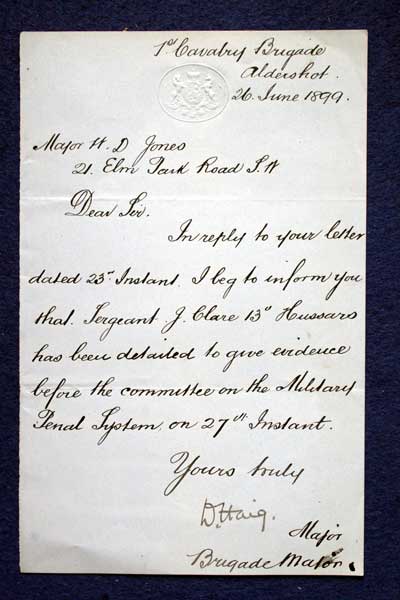 1st Cavalry Brigade
Aldershot.
26. June 1899.
Major H. D Jones
21. Elm Park Road S.W
Dear Sir.
In reply to your letter
dated 23rd Instant. I beg to inform you
that. Sergeant J. Clare 13th Hussars
has been detailed to give evidence
before the committee on the Military
Penal System on 27th Instant.
Yours truly
D. Haig.
Major
Brigade Major.